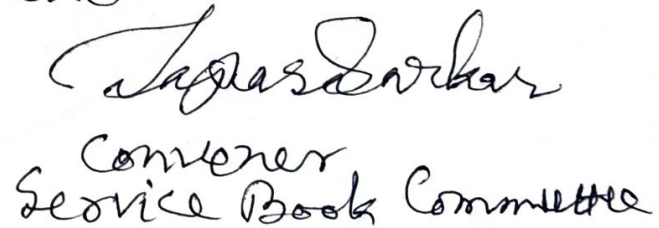 Tapas Sarkar
Convener
Service Book Committee